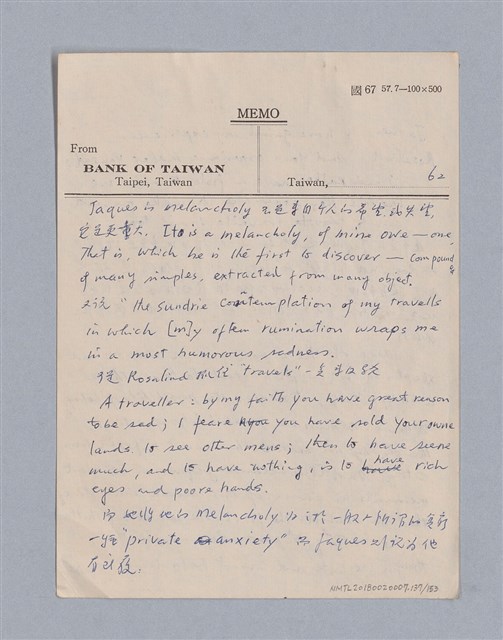 國 67 57. 7—100×500
MEMO
From
BANK OF TAIWAN
Taipei, Taiwan
Taiwan,
62
Jaques is melancholy 不是著自个人的希望或失望,
它這更重大. It is a melancholy, of mine owe — one,
That is, which he is the first to discover — compounded
of many simples, extracted from many object.
又說 "the sundrie contemplation of my travells
in which [m]y often rumination wraps me
in a most humorous sadness.
從 Rosalind "travels" —
A traveller: by my faith you have great reason
to be sad; I feare you have sold your owne
lands to see other mens; then to have seene
much, and to have nothing, is to have rich
eyes and poore hands.
melancholy 一般人所謂的
一種 "private anxiety" 而 Jaques 則認為他
有
NMTL20180020007.137/153